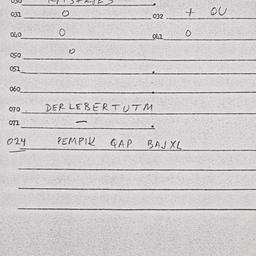 031 0 032 + OU
040 0 041 0
050 0
051
060
070 DERLEBERTUTM
071 —
024 PEMPIK QAP BAJXL